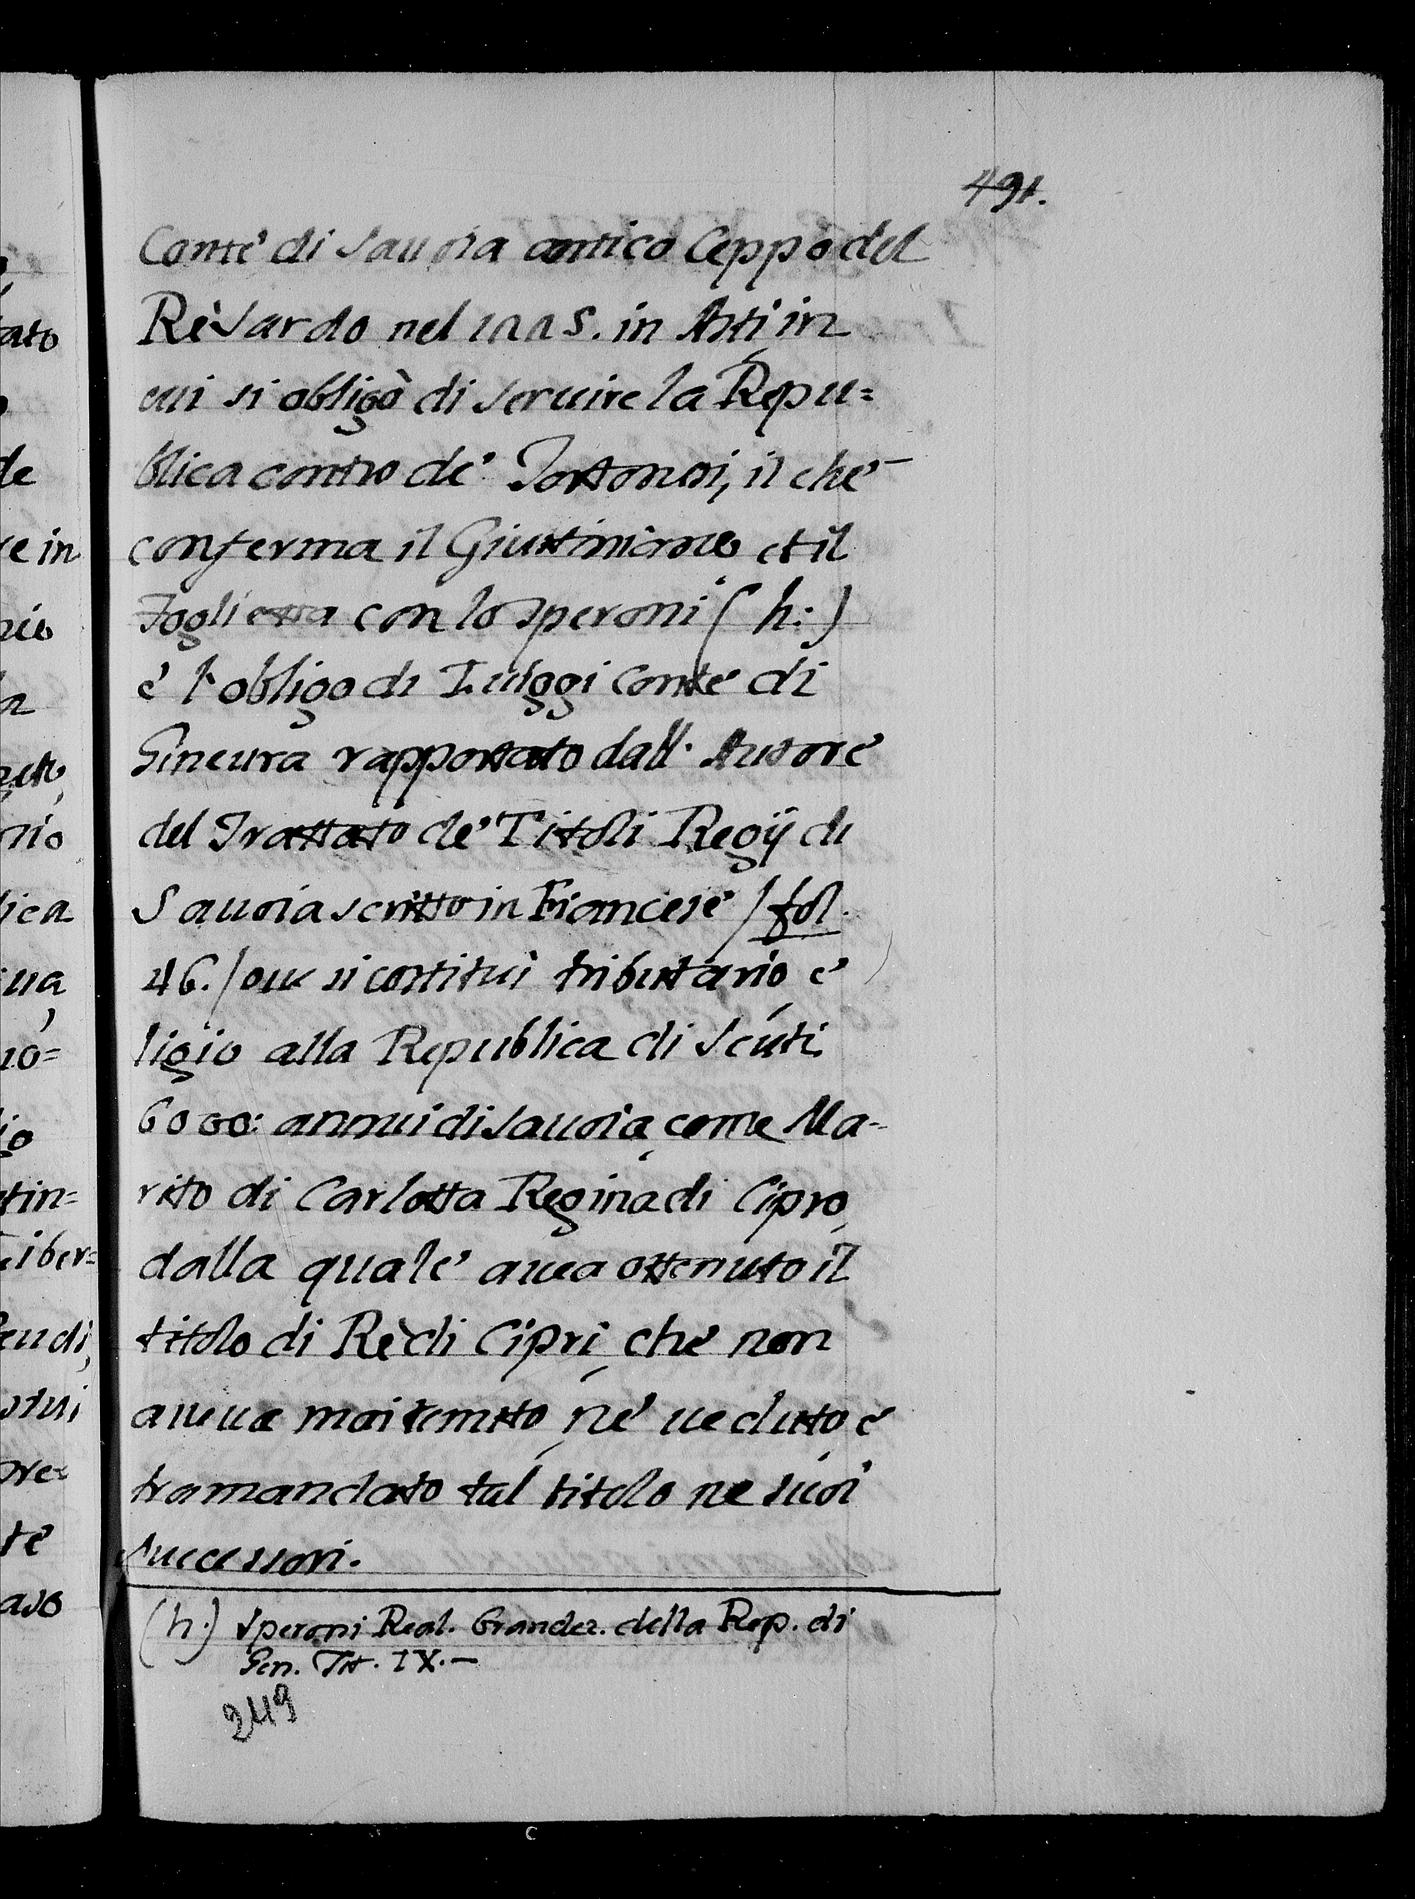 491.
Conte di Sauoia antico Ceppo del
Rè Sardo nel 1225. in Asti, in
cui si obligò di seruire la Repu=
blica contro de' Tortonesi, il che
conferma il Giustiniano et il
Foglietta con lo Speroni (h:)
è l'obligo di Luiggi Conte di
Gineura rapportato dall'Autore
del Trattato de' Titoli Regij di
Sauoia scritto in Francese /fol.
46./ oue si costituì tributario, e
ligio alla Republica di Scuti
6000: annui di Sauoia, come Ma-
rito di Carlotta Regina di Cipro,
dalla quale auea ottenuto il
titolo di Rè di Cipri, che non
aueua mai temuto, nè ueduto, e
tramandato tal titolo ne suoi
successori.
(h.) Speroni Real. Grandez. della Rep. di
Gen. Tit. IX.-
249